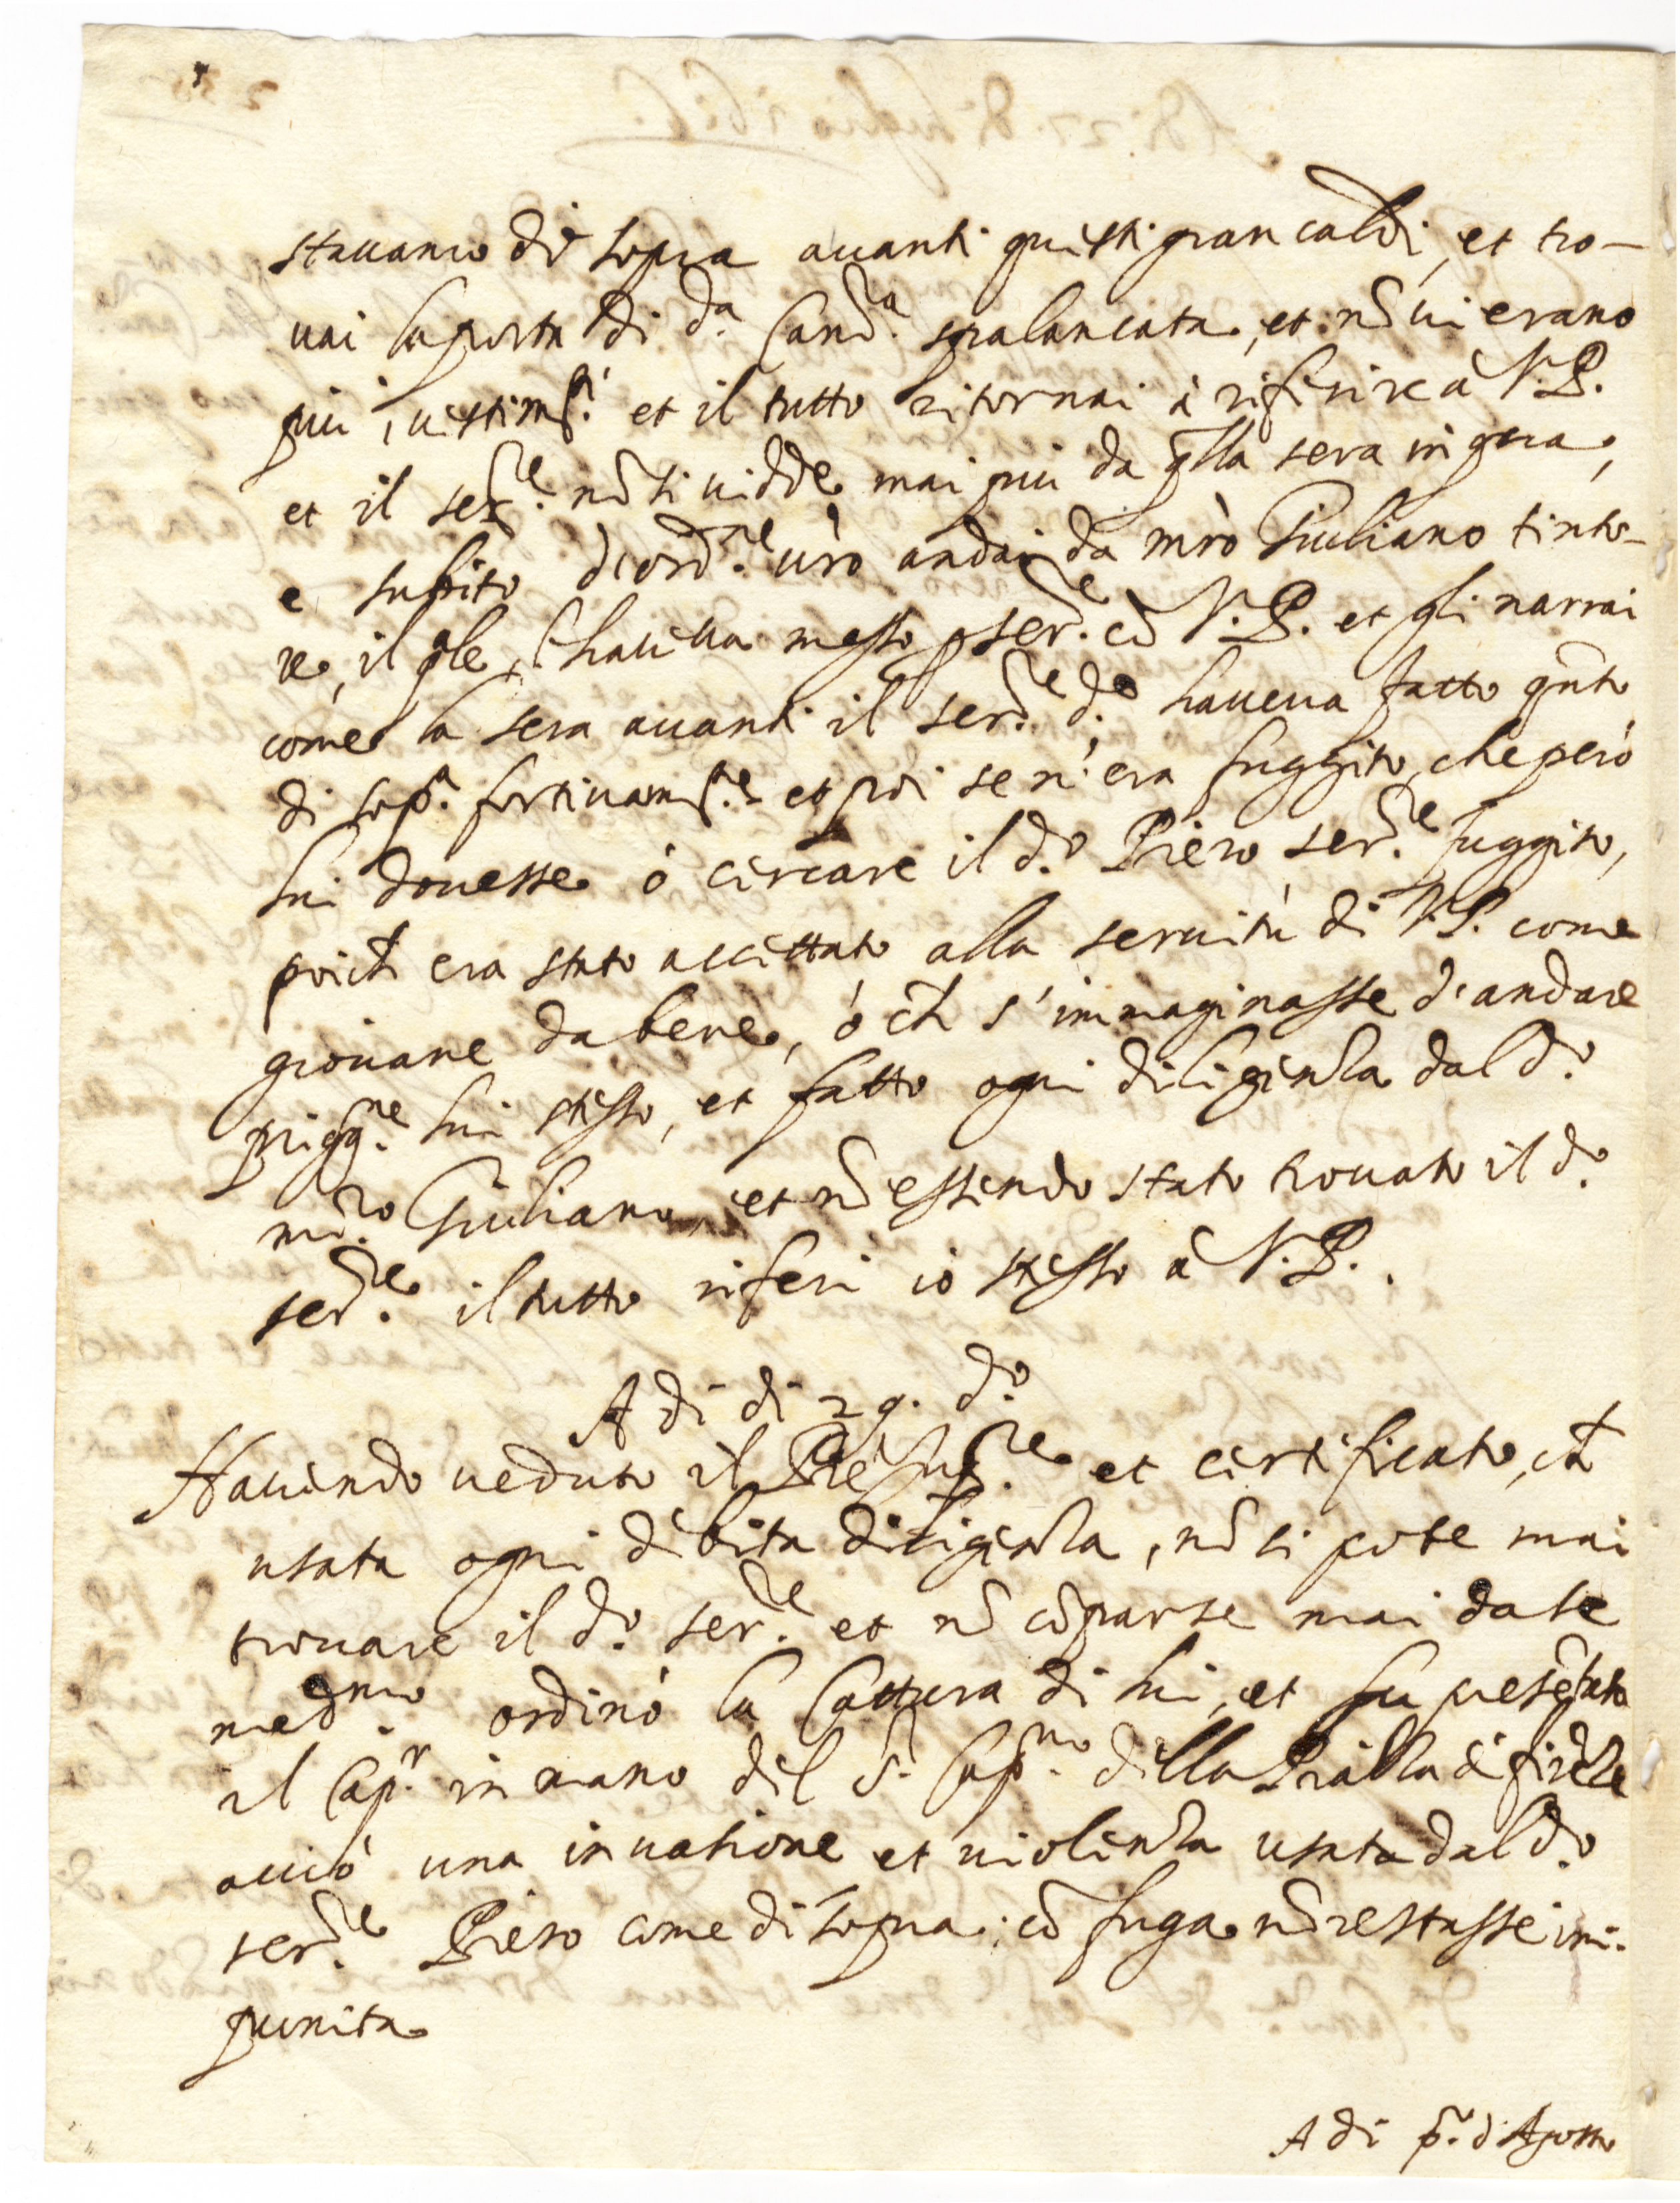 stauamo di sopra auanti questi gran caldi, et tro-
uai la porta di d.a Cam.a spalancata, et nõ ui erano
piu i uestim.ti et il tutto ritornai à riferire à V.P.
et il ser.re nõ si uidde mai piu da q̃lla sera in qua,
e subito di ord.ne urõ andai da mrõ Giuliano tinto-
re, il q̃le l'haueua messo p ser.re cõ V.P. et gli narrai
come la sera auanti il ser.re d.o haueua fatto q̃nto
di sop.a furtiuam.te et poi se n'era fuggito, che però
lui douesse ò cercare il d.o Piero ser.re fuggito,
poich era stato accettato alla seruitù di V.P. come
giouane da bene, ò ch s'immaginasse d'andare
prigg.ne lui stesso, et fatto ogni diligenza dal d.o
m.ro Giuliano, et nõ essendo stato trouato il d.o
ser.re il tutto riferi io stesso à V.P.
A di di 29. d.o
Hauendo ueduto il P̃re et certificato, ch
usata ogni debita diligenza, nõ si pote mai
trouare il d.o ser.re et nõ cõparse mai da se
med.mo ordinò la Cattura di lui, et fu presẽtato
il Cap.r in mano del S.r Cap.no della Piazza di firẽze
acciò una inuasione et uiolenza usata dal d.o
ser.re Piero come di sopra, cõ fuga nõ restasse im-
punita
A di p.o d'Agosto